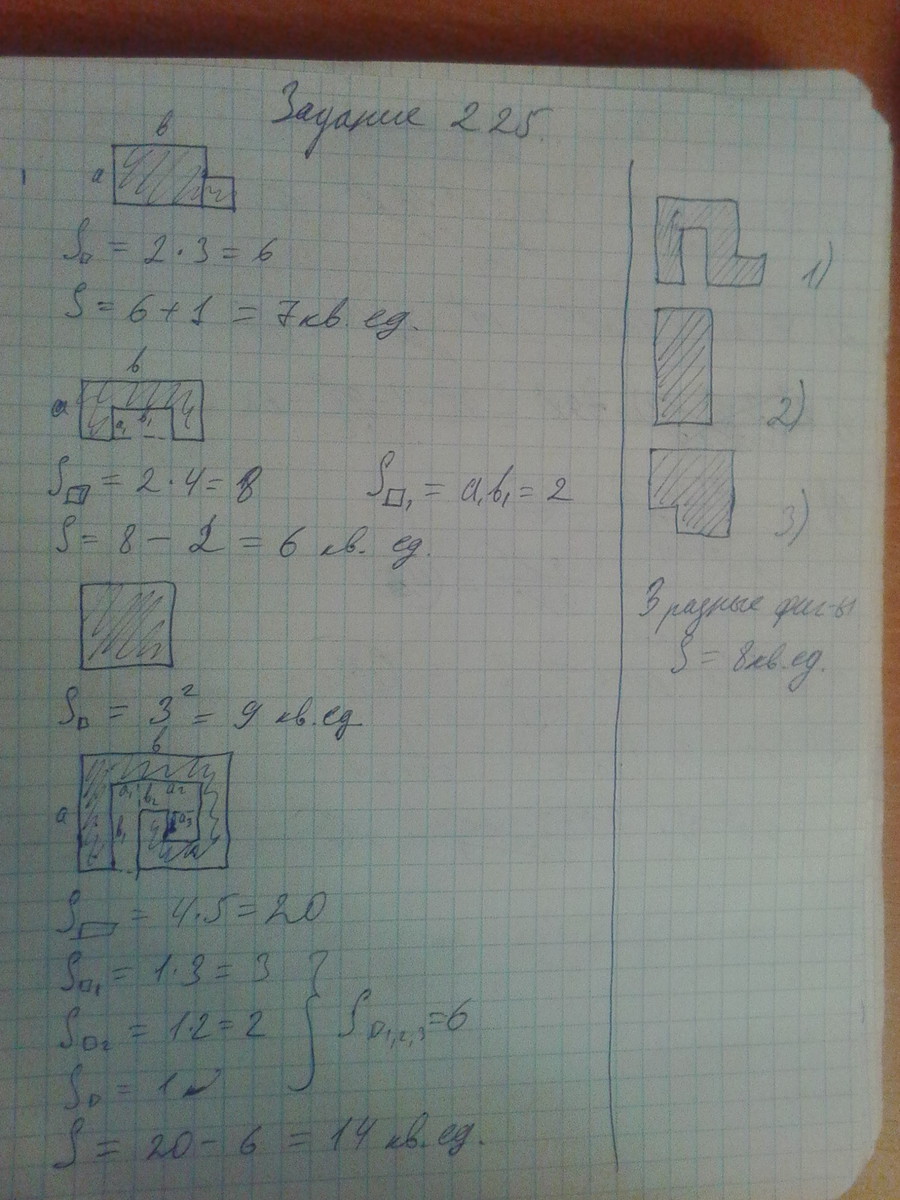 Задание 225.
в
а
S□ = 2·3 = 6
S = 6 + 1 = 7 кв. ед.
в
а
а₁ в₁
S□ = 2·4 = 8 S□₁ = а₁в₁ = 2
S = 8 − 2 = 6 кв. ед.
S□ = 3² = 9 кв. ед
в
а₁ в₂ а₂
а в₁ а₃
S▭ = 4·5 = 20
S□₁ = 1·3 = 3
S□₂ = 1·2 = 2 } S□₁,₂,₃ = 6
S□ = 1
S = 20 − 6 = 14 кв. ед.
1)
2)
3)
3 разные фиг-ы
S = 8 кв. ед.